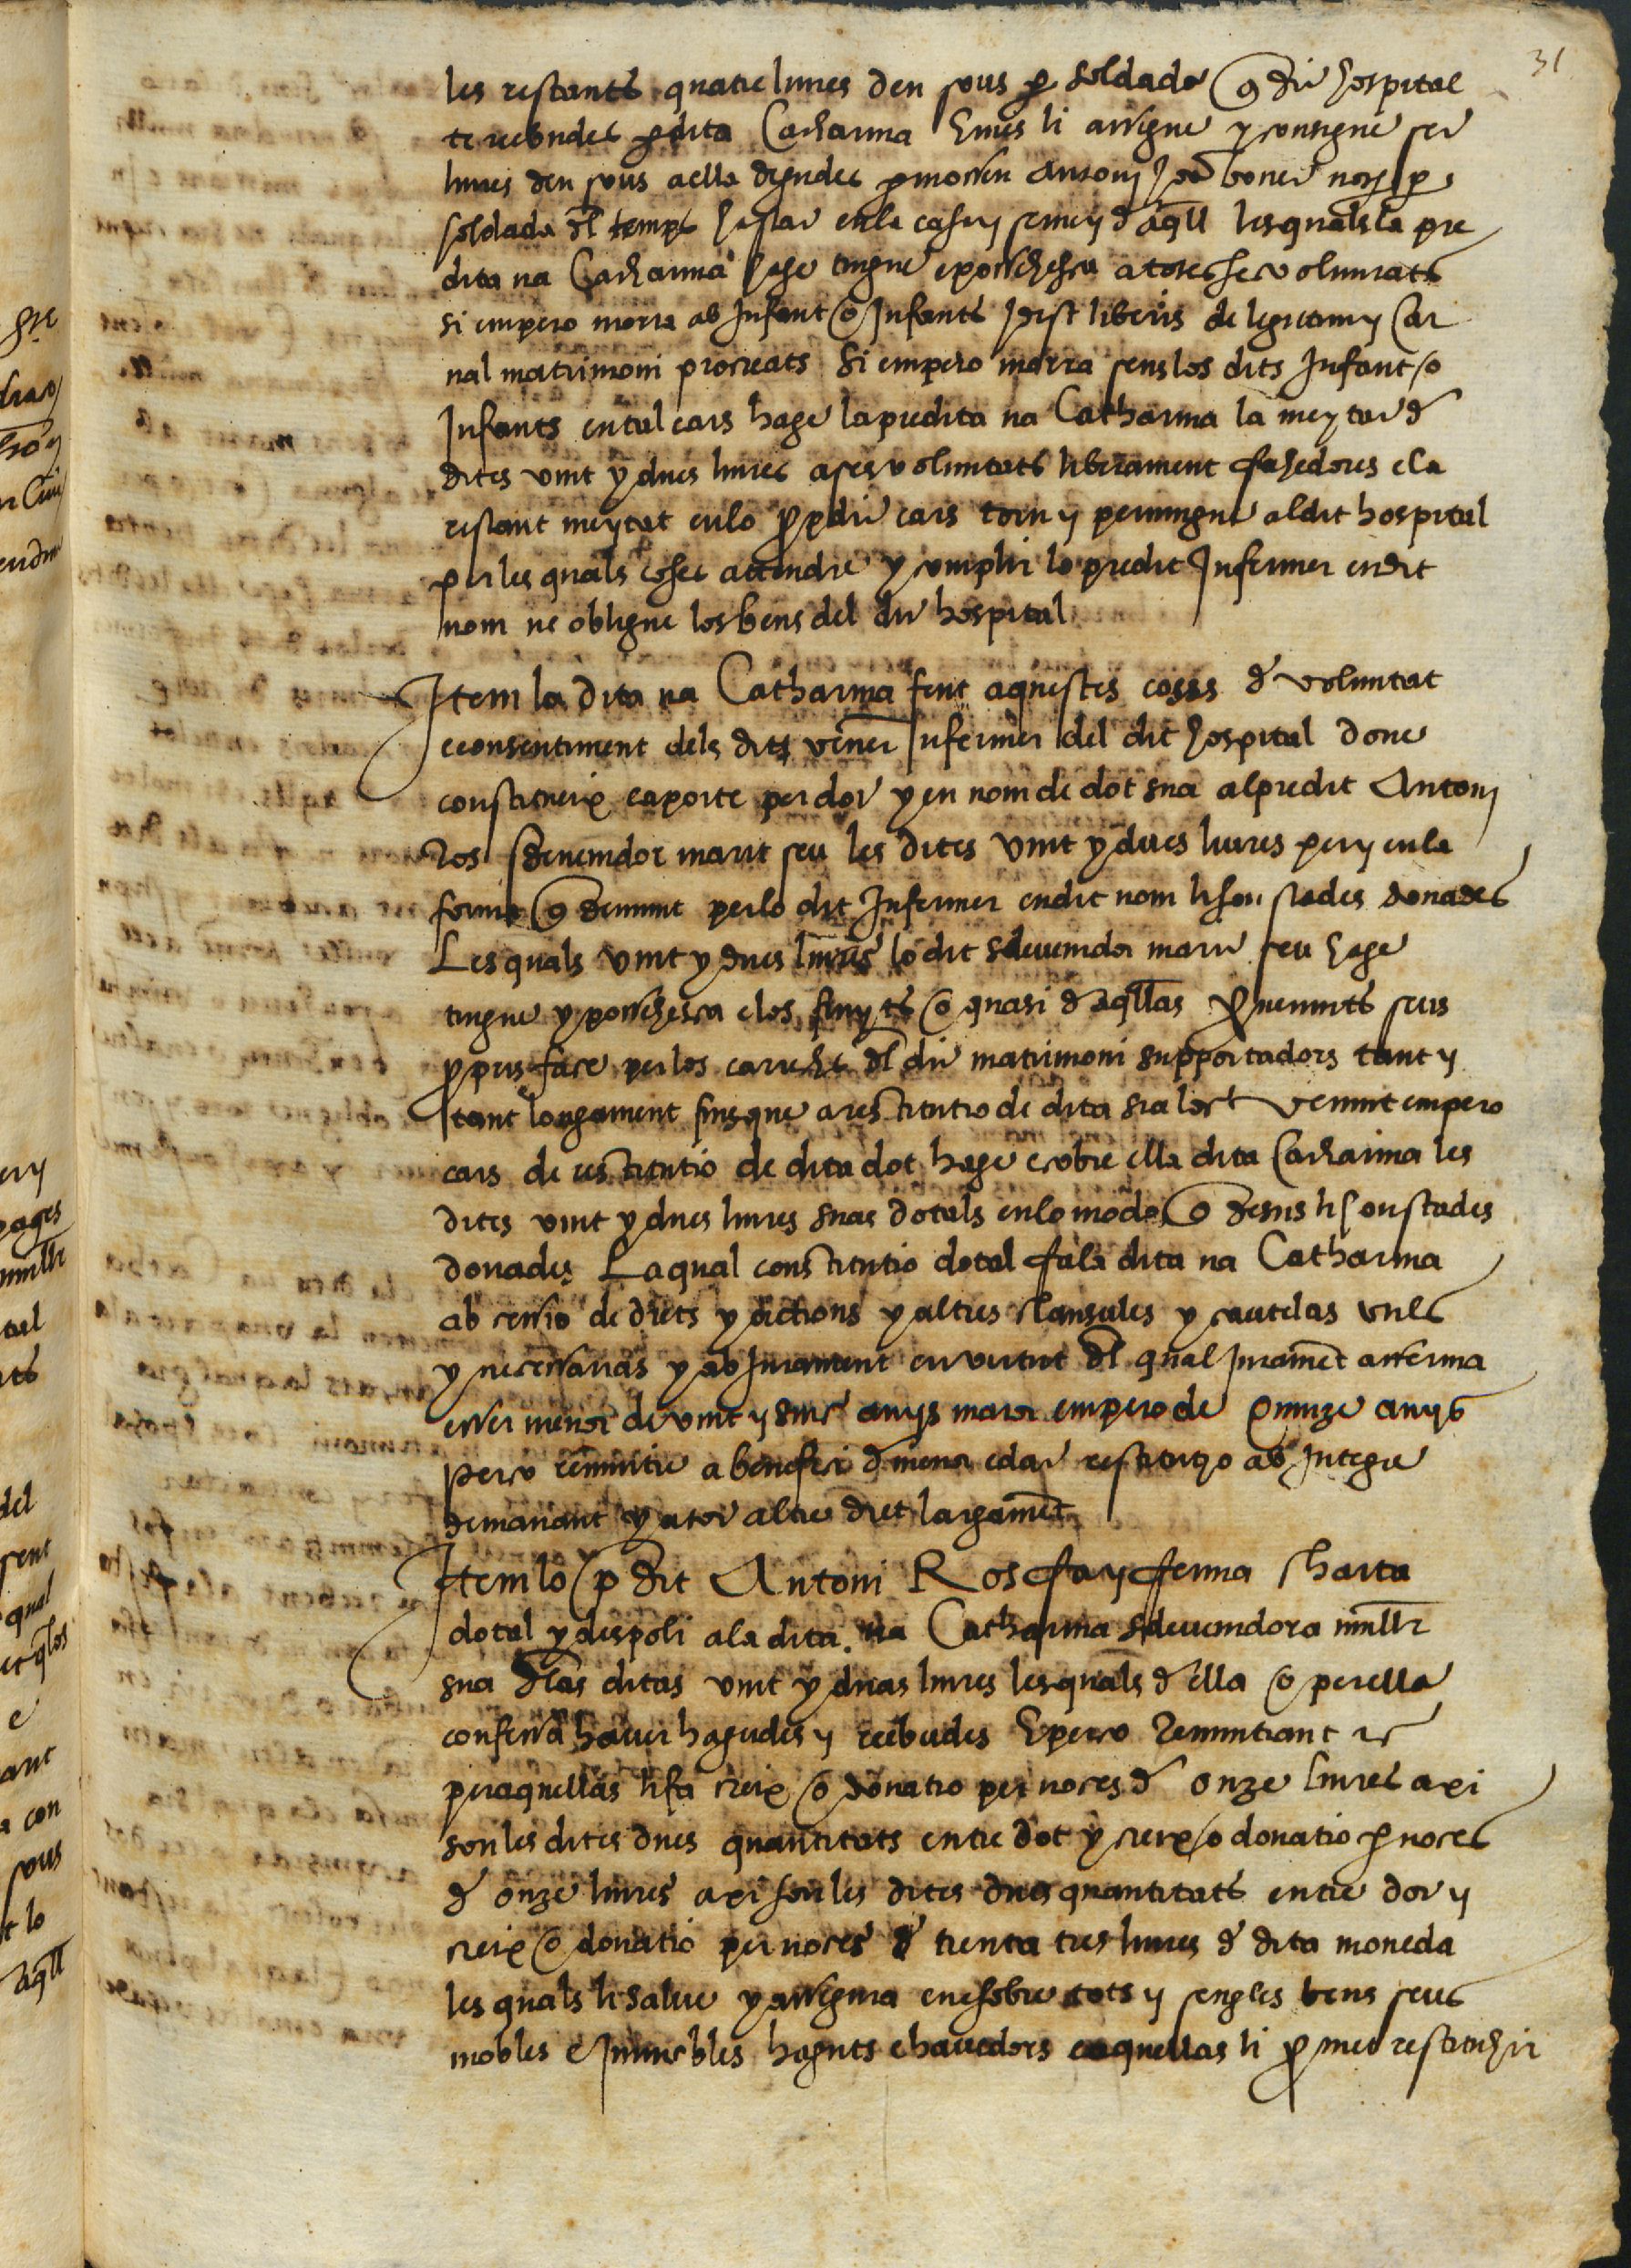 31
les restants quatre liures den sous p soldada q dit hospital
te reebudes p dita Catharina Emes li assigne y consigne set
liures den sous aella degudes p mossen Antoni Joa boner notj p
soldada dl temps ha star enla casa y seruey d aqll lesquals la pre
dita na Catharina hage tingue e possehesca a totes ses voluntats
si empero morra ab Infant o Infants Id est liberis de legitim y Car
nal matrimoni procreats Si empero morra sens los dits Infant o
Infants en tal cars hage la predita na Catharina la meytat d
dites vint y dues liures a ses voluntats liberament fahedores e la
restant meytat enlo predit cars torn y peruingue al dit hospital
per les quals coses attendre y complir lo predit Infermer en dit
nom ne obligue los bens del dit hospital
Item la dita na Catharina fent aquestes coses d voluntat
e consentiment dels dits vener Infermer del dit hospital done
constitueix e aporte per dot y en nom de dot sua al predit Antoni
Ros sdeuenidor marit seu les dites vint y dues liures per y enla
forma q demunt per lo dit Infermer en dit nom li son stades donades
Les quals vint y dues liures lo dit sdeuenidor marit seu hage
tingue y possehesca e los fruyts o quasi d aqllas prouenints seus
propris face per los carrechs dl dit matrimoni supportadors tant y
tant longament fins que a restitutio de dita sia lloch venint empero
cars de restitutio de dita dot hage e cobre ella dita Catharina les
dites vint y dues liures suas dotals enlo modo q desus li son stades
donades Laqual constitutio dotal fa la dita na Catharina
ab cessio de drets y actions y altres clausules y cautelas vtils
y necessarias y ab Jurament en virtut dl qual Jurament afferma
esser menor de vint y sinc anys maior empero de Quinze anys
perco renuntie a benefici d menor edat restitutio ab Integre
demanant y a tot altre dret largament
Item lo pdit Antoni Ros fa y ferma charta
dotal y despoli a la dita na Catharina sdeuenidora mullr
sua dlas ditas vint y duas liures lesquals d ella o per ella
confessa hauer hagudes y reebudes E perco Renuntiant etc
per aquellas li fa creix o donatio per noces d onze liures axi
son les dites dues quantitats entre dot y creix o donatio p noces
d onze liures axi son les dites dues quantitats entre dot y
creix o donatio per noces d trenta tres liures d dita moneda
les quals li salue y assigna en e sobre tots y sengles bens seus
mobles e Immobles haguts e hauedors e aquellas li promet restituhir